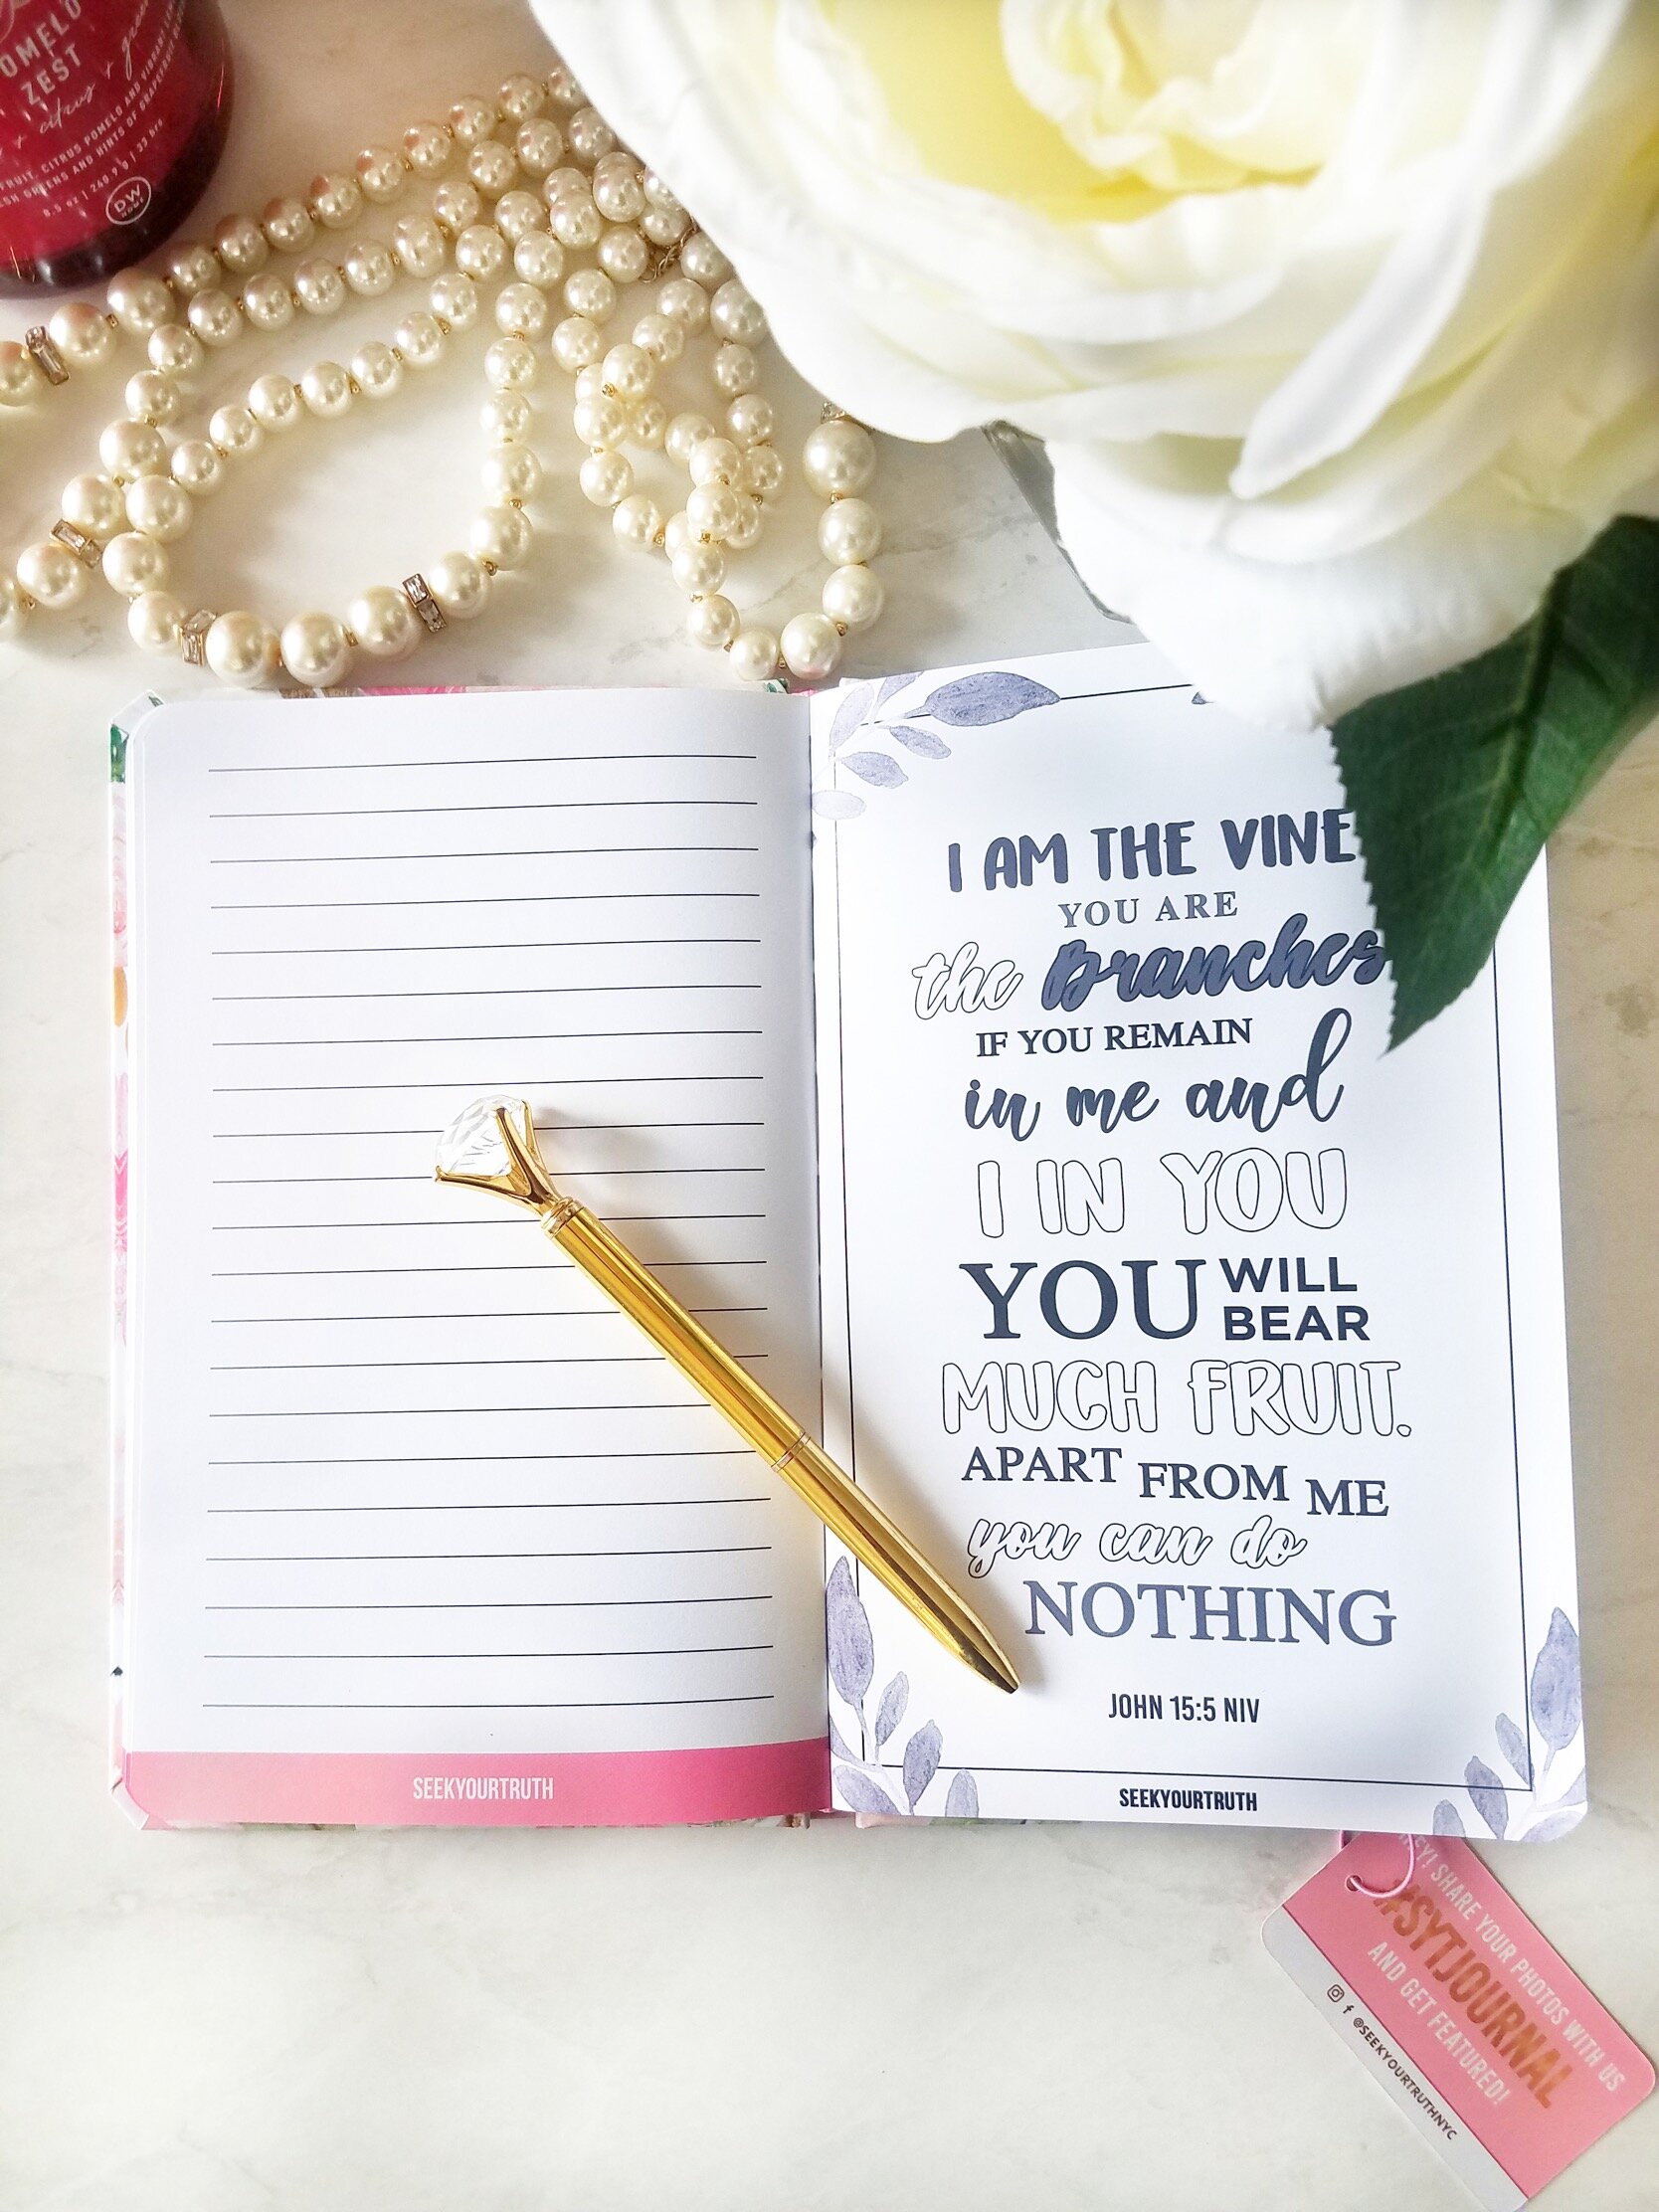 OMELO
ZEST
citrus + green
FRUIT, CITRUS POMELO AND VIBRANT
SH GREENS AND HINTS OF GRAPEFRUIT
8.5 oz | 240.9 g | 33 hrs
DW
HOME
I AM THE VINE
YOU ARE
the Branches
IF YOU REMAIN
in me and
I IN YOU
YOU WILL
BEAR
MUCH FRUIT.
APART FROM ME
you can do
NOTHING
JOHN 15:5 NIV
SEEKYOURTRUTH
SEEKYOURTRUTH
HEY! SHARE YOUR PHOTOS WITH US
#SYTJOURNAL
AND GET FEATURED!
@SEEKYOURTRUTHNYC